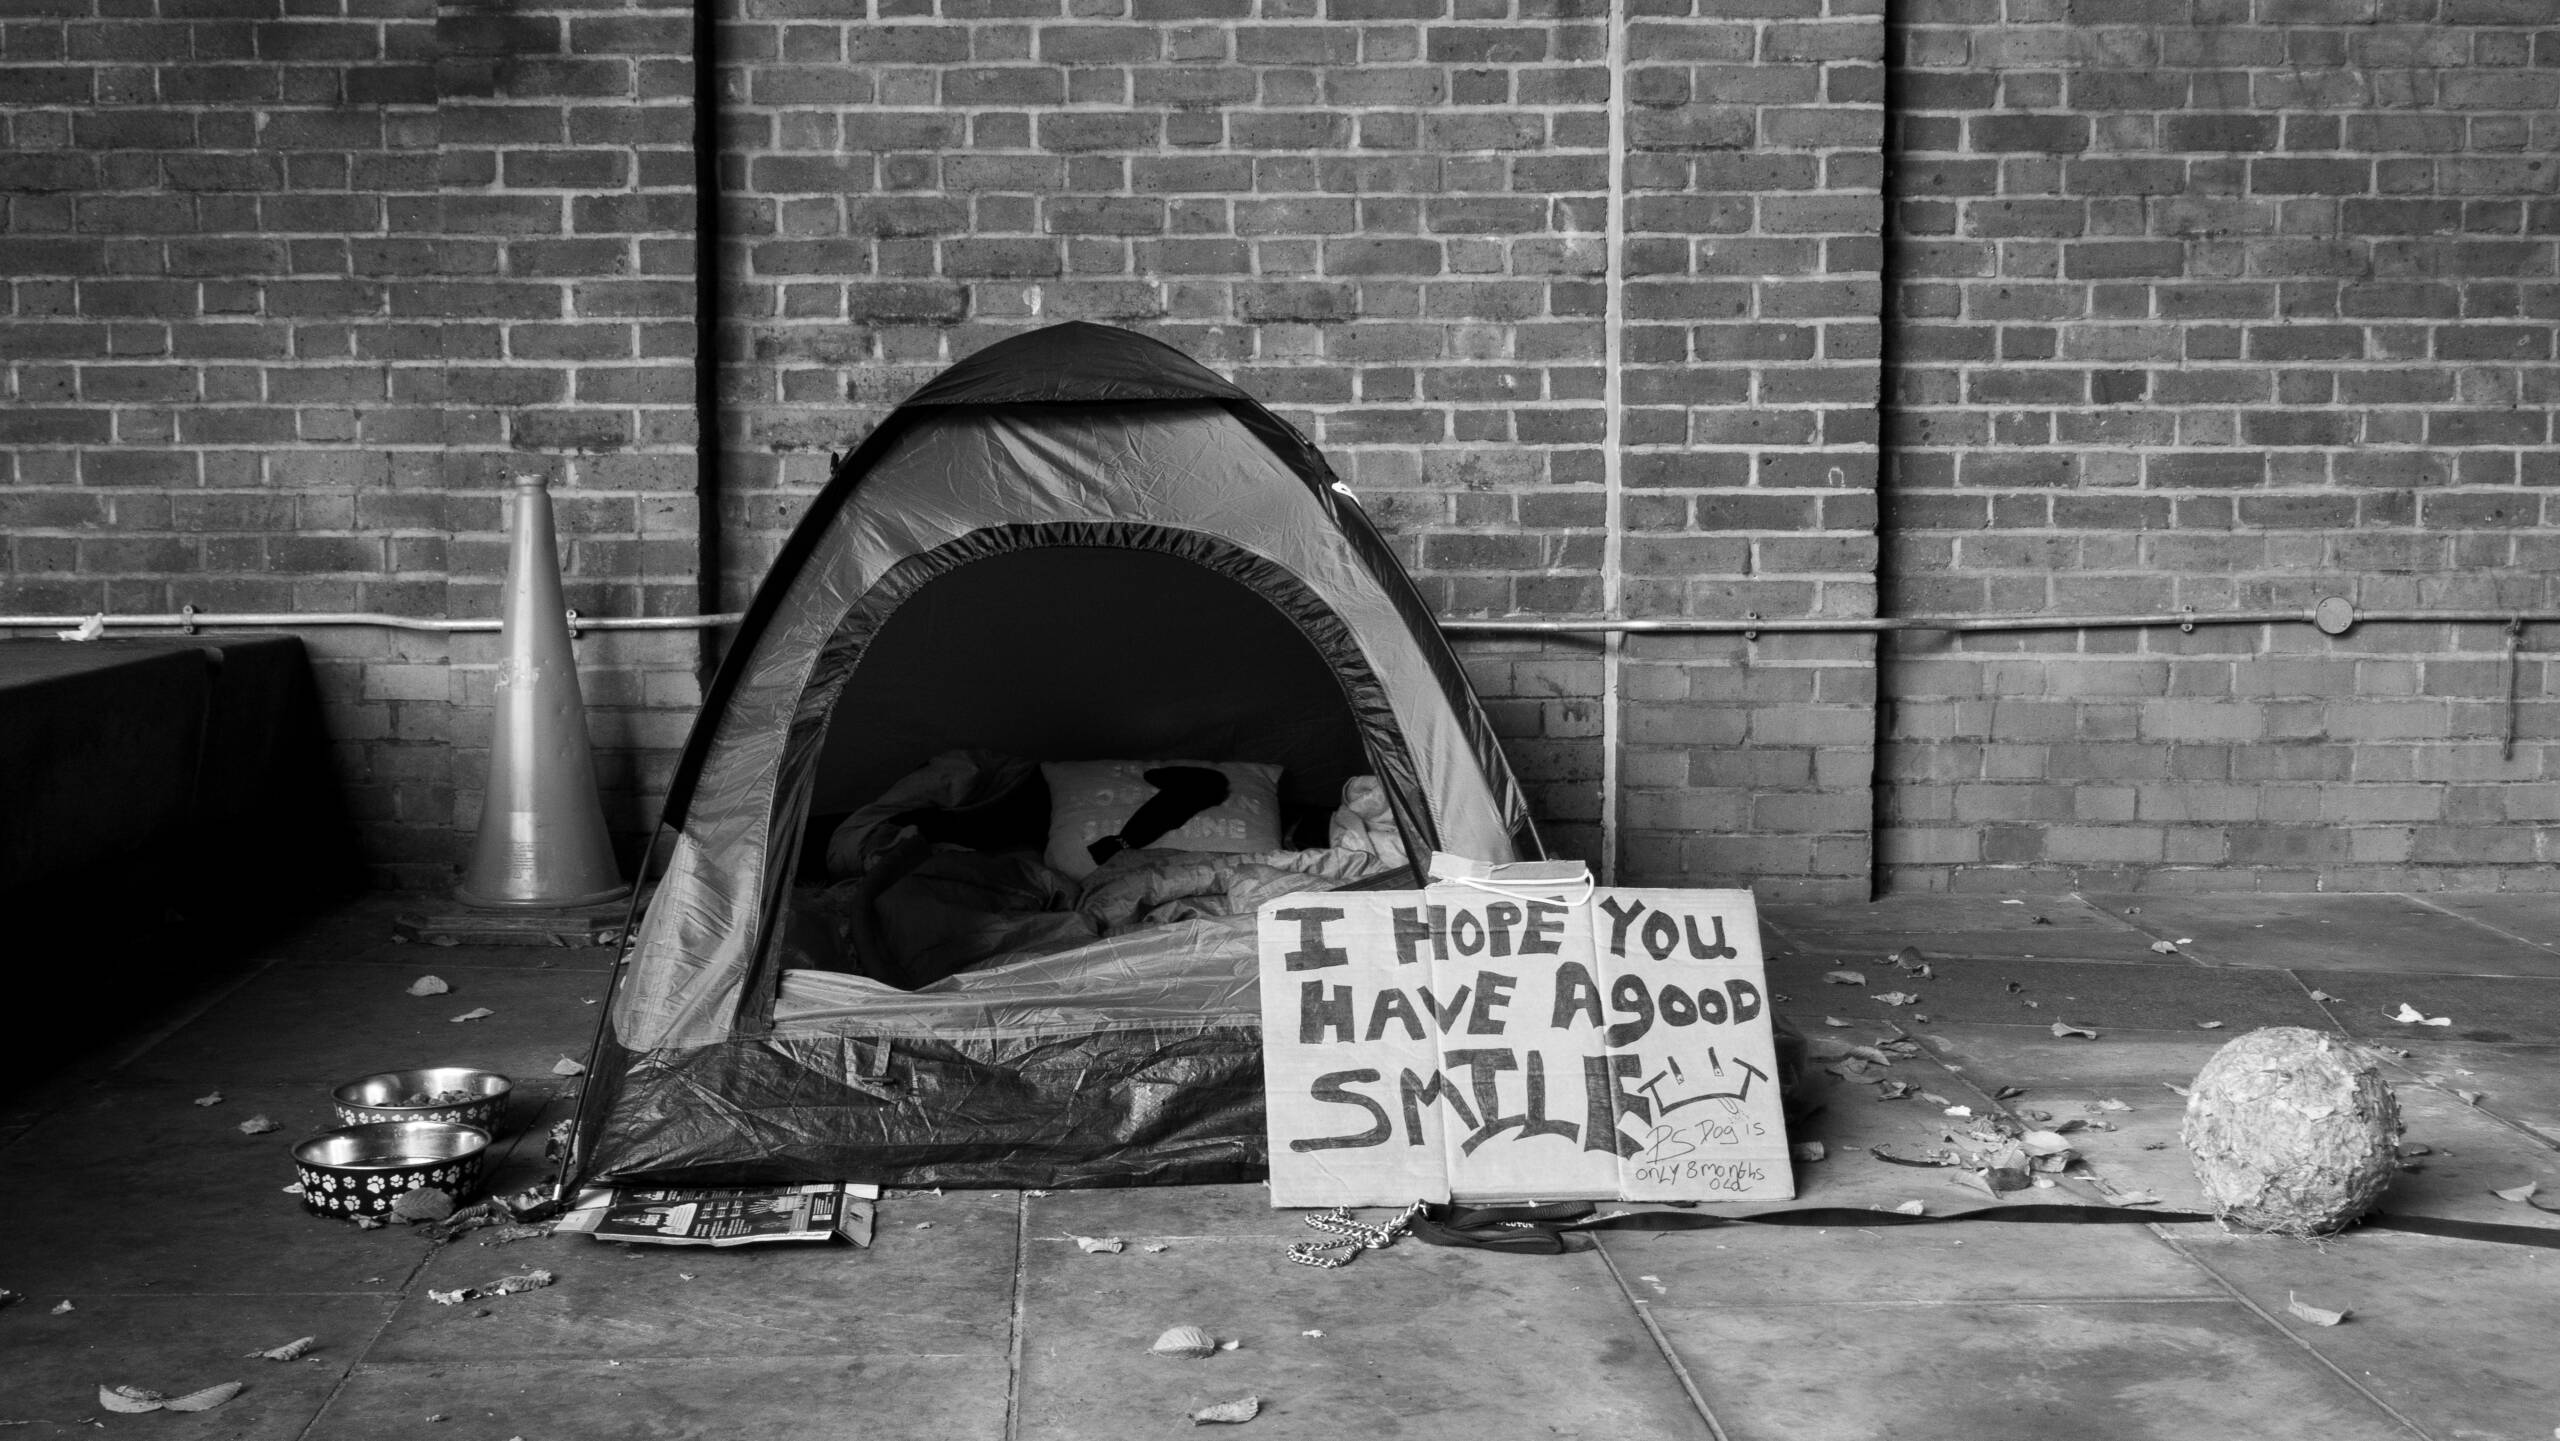 I HOPE YOU
HAVE A gOOD
SMILE
PS Dog is
ONLY 8 months
OLd